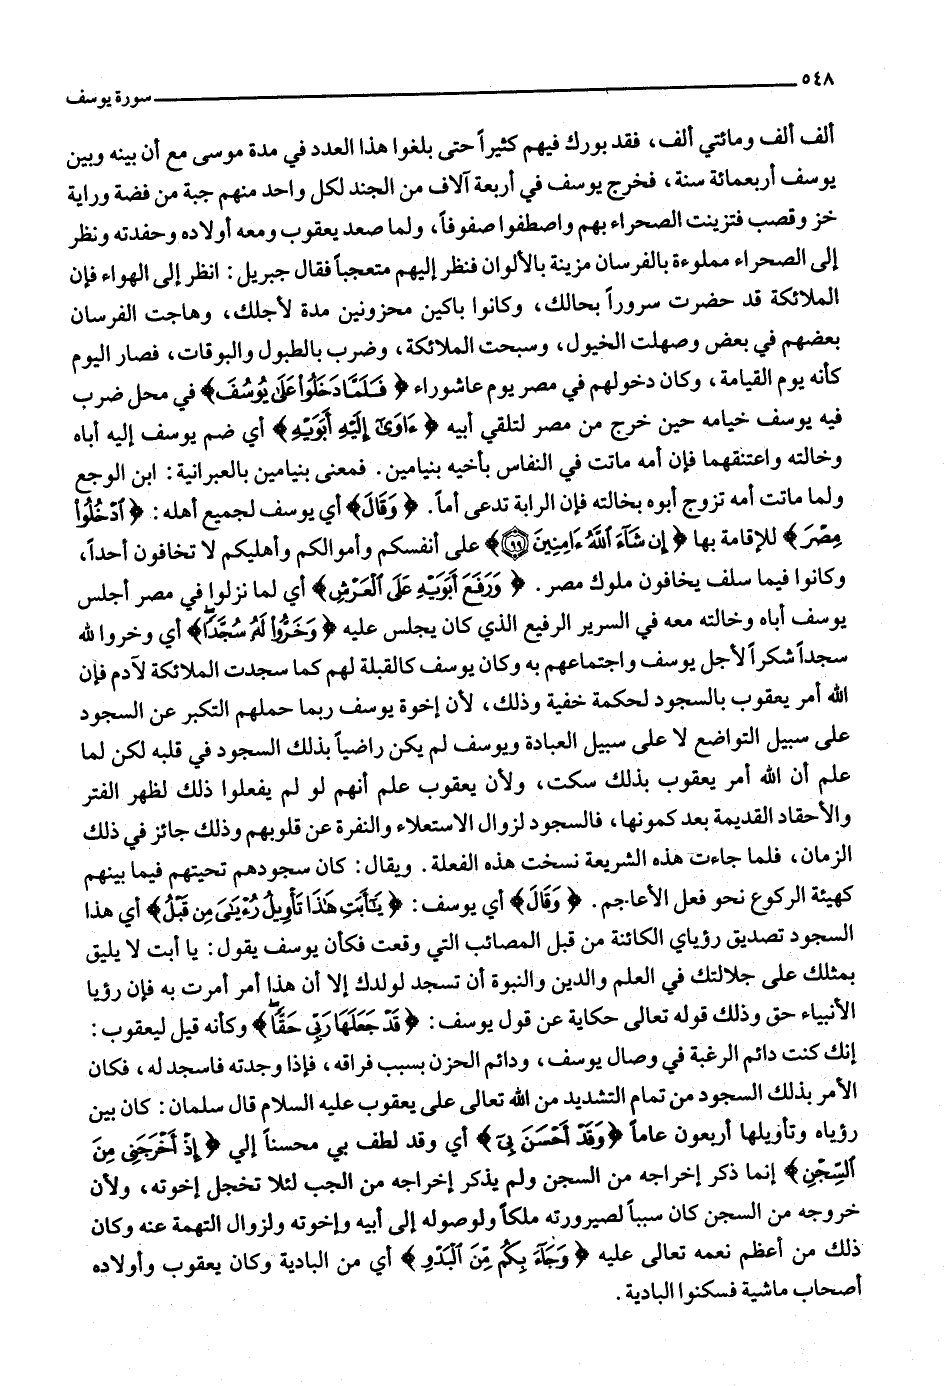 ٥٤٨ سورة يوسف
ألف ألف ومائتي ألف، فقد بورك فيهم كثيراً حتى بلغوا هذا العدد في مدة موسى مع أن بينه وبين
يوسف أربعمائة سنة، فخرج يوسف في أربعة آلاف من الجند لكل واحد منهم جبة من فضة وراية
خز وقصب فتزينت الصحراء بهم واصطفوا صفوفاً، ولما صعد يعقوب ومعه أولاده وحفدته ونظر
إلى الصحراء مملوءة بالفرسان مزينة بالألوان فنظر إليهم متعجباً فقال جبريل: انظر إلى الهواء فإن
الملائكة قد حضرت سروراً بحالك، وكانوا باكين محزونين مدة لأجلك، وهاجت الفرسان
بعضهم في بعض وصهلت الخيول، وسبحت الملائكة، وضرب بالطبول والبوقات، فصار اليوم
كأنه يوم القيامة، وكان دخولهم في مصر يوم عاشوراء ﴿فَلَمَّا دَخَلُوا۟ عَلَىٰ يُوسُفَ﴾ في محل ضرب
فيه يوسف خيامه حين خرج من مصر لتلقي أبيه ﴿ءَاوَىٰٓ إِلَيْهِ أَبَوَيْهِ﴾ أي ضم يوسف إليه أباه
وخالته واعتنقهما فإن أمه ماتت في النفاس بأخيه بنيامين. فمعنى بنيامين بالعبرانية: ابن الوجع
ولما ماتت أمه تزوج أبوه بخالته فإن الرابة تدعى أماً. ﴿وَقَالَ﴾ أي يوسف لجميع أهله: ﴿ٱدْخُلُوا۟
مِصْرَ﴾ للإقامة بها ﴿إِن شَآءَ ٱللَّهُ ءَامِنِينَ ٩٩﴾ على أنفسكم وأموالكم وأهليكم لا تخافون أحداً،
وكانوا فيما سلف يخافون ملوك مصر. ﴿وَرَفَعَ أَبَوَيْهِ عَلَى ٱلْعَرْشِ﴾ أي لما نزلوا في مصر أجلس
يوسف أباه وخالته معه في السرير الرفيع الذي كان يجلس عليه ﴿وَخَرُّوا۟ لَهُۥ سُجَّدًۭا﴾ أي وخروا لله
سجداً شكراً لأجل يوسف واجتماعهم به وكان يوسف كالقبلة لهم كما سجدت الملائكة لآدم فإن
الله أمر يعقوب بالسجود لحكمة خفية وذلك، لأن إخوة يوسف ربما حملهم التكبر عن السجود
على سبيل التواضع لا على سبيل العبادة ويوسف لم يكن راضياً بذلك السجود في قلبه لكن لما
علم أن الله أمر يعقوب بذلك سكت، ولأن يعقوب علم أنهم لو لم يفعلوا ذلك لظهر الفتر
والأحقاد القديمة بعد كمونها، فالسجود لزوال الاستعلاء والنفرة عن قلوبهم وذلك جائز في ذلك
الزمان، فلما جاءت هذه الشريعة نسخت هذه الفعلة. ويقال: كان سجودهم تحيتهم فيما بينهم
كهيئة الركوع نحو فعل الأعاجم. ﴿وَقَالَ﴾ أي يوسف: ﴿يَٰٓأَبَتِ هَٰذَا تَأْوِيلُ رُءْيَٰىَ مِن قَبْلُ﴾ أي هذا
السجود تصديق رؤياي الكائنة من قبل المصائب التي وقعت فكأن يوسف يقول: يا أبت لا يليق
بمثلك على جلالتك في العلم والدين والنبوة أن تسجد لولدك إلا أن هذا أمر أمرت به فإن رؤيا
الأنبياء حق وذلك قوله تعالى حكاية عن قول يوسف: ﴿قَدْ جَعَلَهَا رَبِّى حَقًّۭا﴾ وكأنه قيل ليعقوب:
إنك كنت دائم الرغبة في وصال يوسف، ودائم الحزن بسبب فراقه، فإذا وجدته فاسجد له، فكان
الأمر بذلك السجود من تمام التشديد من الله تعالى على يعقوب عليه السلام قال سلمان: كان بين
رؤياه وتأويلها أربعون عاماً ﴿وَقَدْ أَحْسَنَ بِىٓ﴾ أي وقد لطف بي محسناً إلي ﴿إِذْ أَخْرَجَنِى مِنَ
ٱلسِّجْنِ﴾ إنما ذكر إخراجه من السجن ولم يذكر إخراجه من الجب لئلا تخجل إخوته، ولأن
خروجه من السجن كان سبباً لصيرورته ملكاً ولوصوله إلى أبيه وإخوته ولزوال التهمة عنه وكان
ذلك من أعظم نعمه تعالى عليه ﴿وَجَآءَ بِكُم مِّنَ ٱلْبَدْوِ﴾ أي من البادية وكان يعقوب وأولاده
أصحاب ماشية فسكنوا البادية.